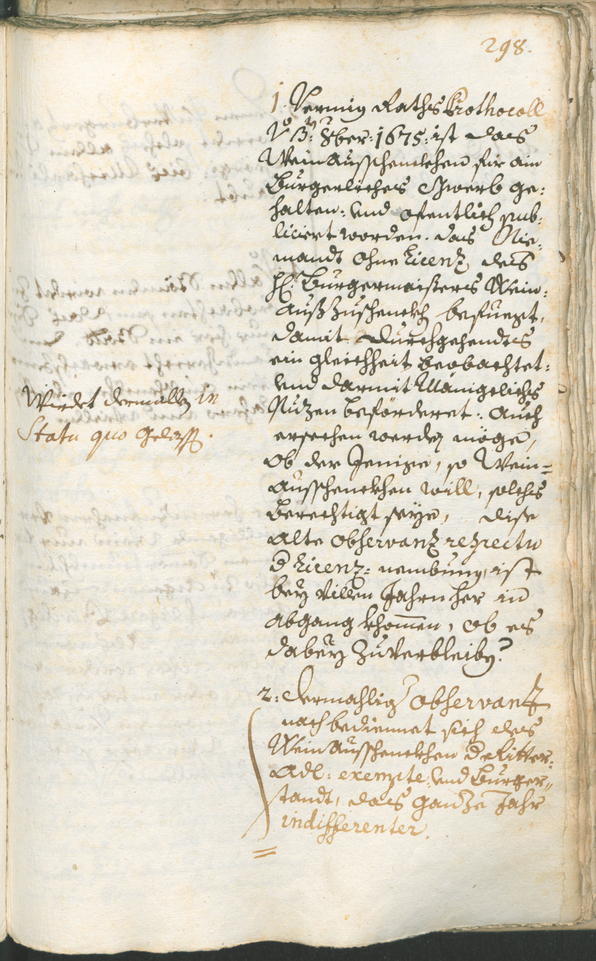 298.
1. Vermig Raths Prothocoll
Vo 13. 8ber: 1675: ist das
Wein ausschenckhen für ain
Burgerliches Gwerb ge:
halten: vnd ofentlich pub:
liciert worden. das Nie:
mandt ohne Licenz des
H: Burgermaisters Wein:
auszuschenckh befuegt,
damit durchgehendts
ein gleichheit beobachtet:
vnd darmit Manigelichs
Nuzen beförderet: Auch
ersechen werden möge,
ob der Jenige, so Wein=
ausschenckhen will, solches
berechtigt seye, dise
alte observanz respectu
d Licenz: nembung, ist
bey villen Jahrn her in
abgang khomen, ob es
dabey zuverbleiben?
Würdet dermallen in
Statu quo gelassen.
2: dermahliger observantz
nach bediennet sich des
Wein ausschenckhen d Ritter:
Adl: exempte, vnd Burger=
standt, das ganze Jahr
indifferenter.